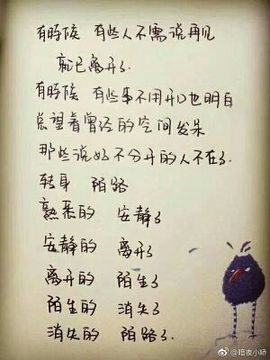 有时候 有些人不需说再见
就已离开了.
有时候 有些事不用开口也明白
总望着曾经的空间发呆
那些说好不分开的人不在了.
转身 陌路
熟悉的 安静了
安静的 离开了
离开的 陌生了
陌生的 消失了
消失的 陌路了.
@招夜小师